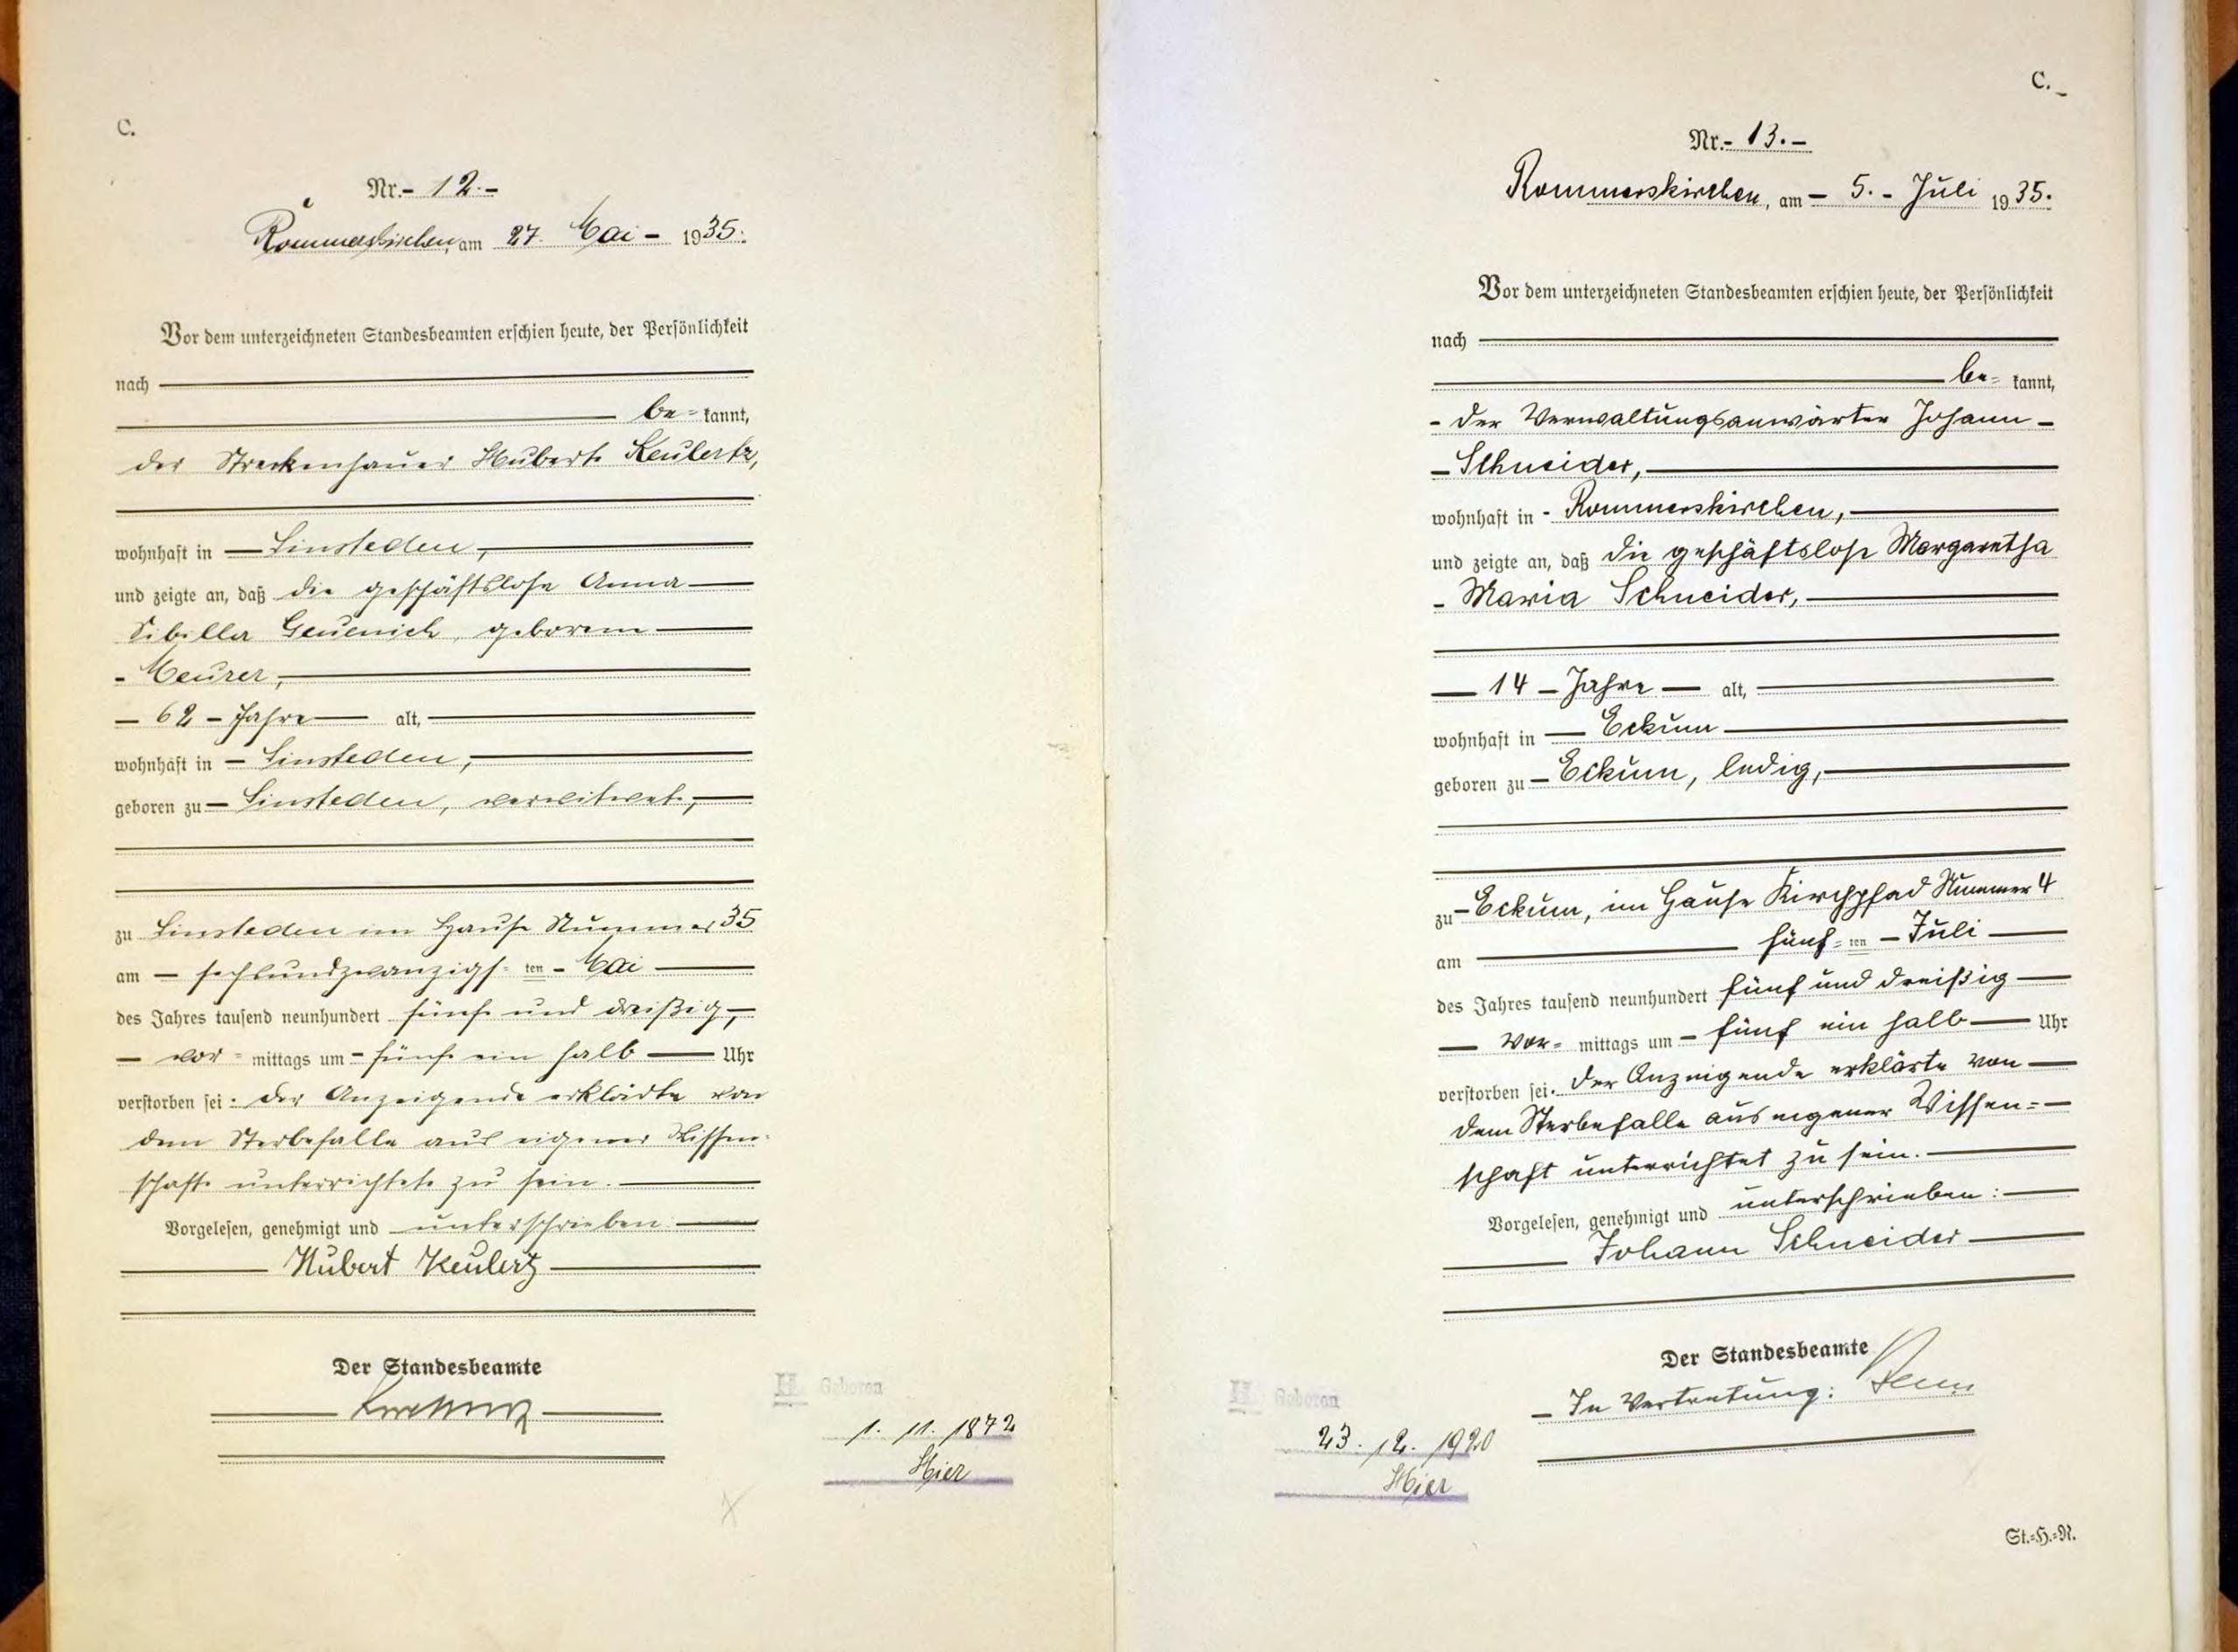 C.
Nr. - 12. -
Rommerskirchen, am 27. Mai - 1935.
Vor dem unterzeichneten Standesbeamten erschien heute, der Persönlichkeit
nach
be= kannt,
der Streckenhauer Hubert Keulertz,
wohnhaft in - Sinsteden,
und zeigte an, daß die geschäftslose Anna
Sibilla Geuenich, geborene
- Meurer,
- 62 - Jahre - alt,
wohnhaft in - Sinsteden,
geboren zu - Sinsteden, verwitwet,
zu Sinsteden im Hause Nummer 35
am - sechsundzwanzigs= ten - Mai
des Jahres tausend neunhundert fünf und dreißig,
- vor = mittags um - fünf ein halb - Uhr
verstorben sei: der Anzeigende erklärte von
dem Sterbefalle aus eigener Wissen=
schaft unterrichtet zu sein.
Vorgelesen, genehmigt und unterschrieben:
Hubert Keulertz
Der Standesbeamte
H Geboren
1. 11. 1872
Hier
C.
Nr. - 13. -
Rommerskirchen, am - 5. - Juli 1935.
Vor dem unterzeichneten Standesbeamten erschien heute, der Persönlichkeit
nach
be= kannt,
- der Verwaltungsanwärter Johann -
- Schneider,
wohnhaft in - Rommerskirchen,
und zeigte an, daß die geschäftslose Margaretha
- Maria Schneider,
- 14 - Jahre - alt,
wohnhaft in - Eckum
geboren zu - Eckum, ledig,
zu - Eckum, im Hause Kirchpfad Nummer 4
am fünf= ten - Juli
des Jahres tausend neunhundert fünf und dreißig
- vor= mittags um - fünf ein halb - Uhr
verstorben sei. Der Anzeigende erklärte von
dem Sterbefalle aus eigener Wissen=
schaft unterrichtet zu sein.
Vorgelesen, genehmigt und unterschrieben:
Johann Schneider
Der Standesbeamte
- In Vertretung:
H Geboren
23. 12. 1920
Hier
St.=H.=R.